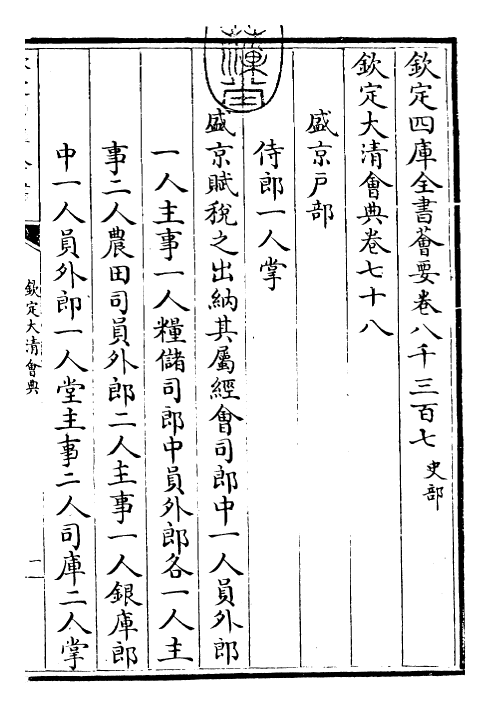 欽定四庫全書薈要卷八千三百七 史部
欽定大清會典卷七十八
盛京戶部
侍郎一人掌
盛京賦稅之出納其屬經會司郎中一人員外郎
一人主事一人糧儲司郎中員外郎各一人主
事二人農田司員外郎二人主事一人銀庫郎
中一人員外郎一人堂主事二人司庫二人掌
欽定大清會典